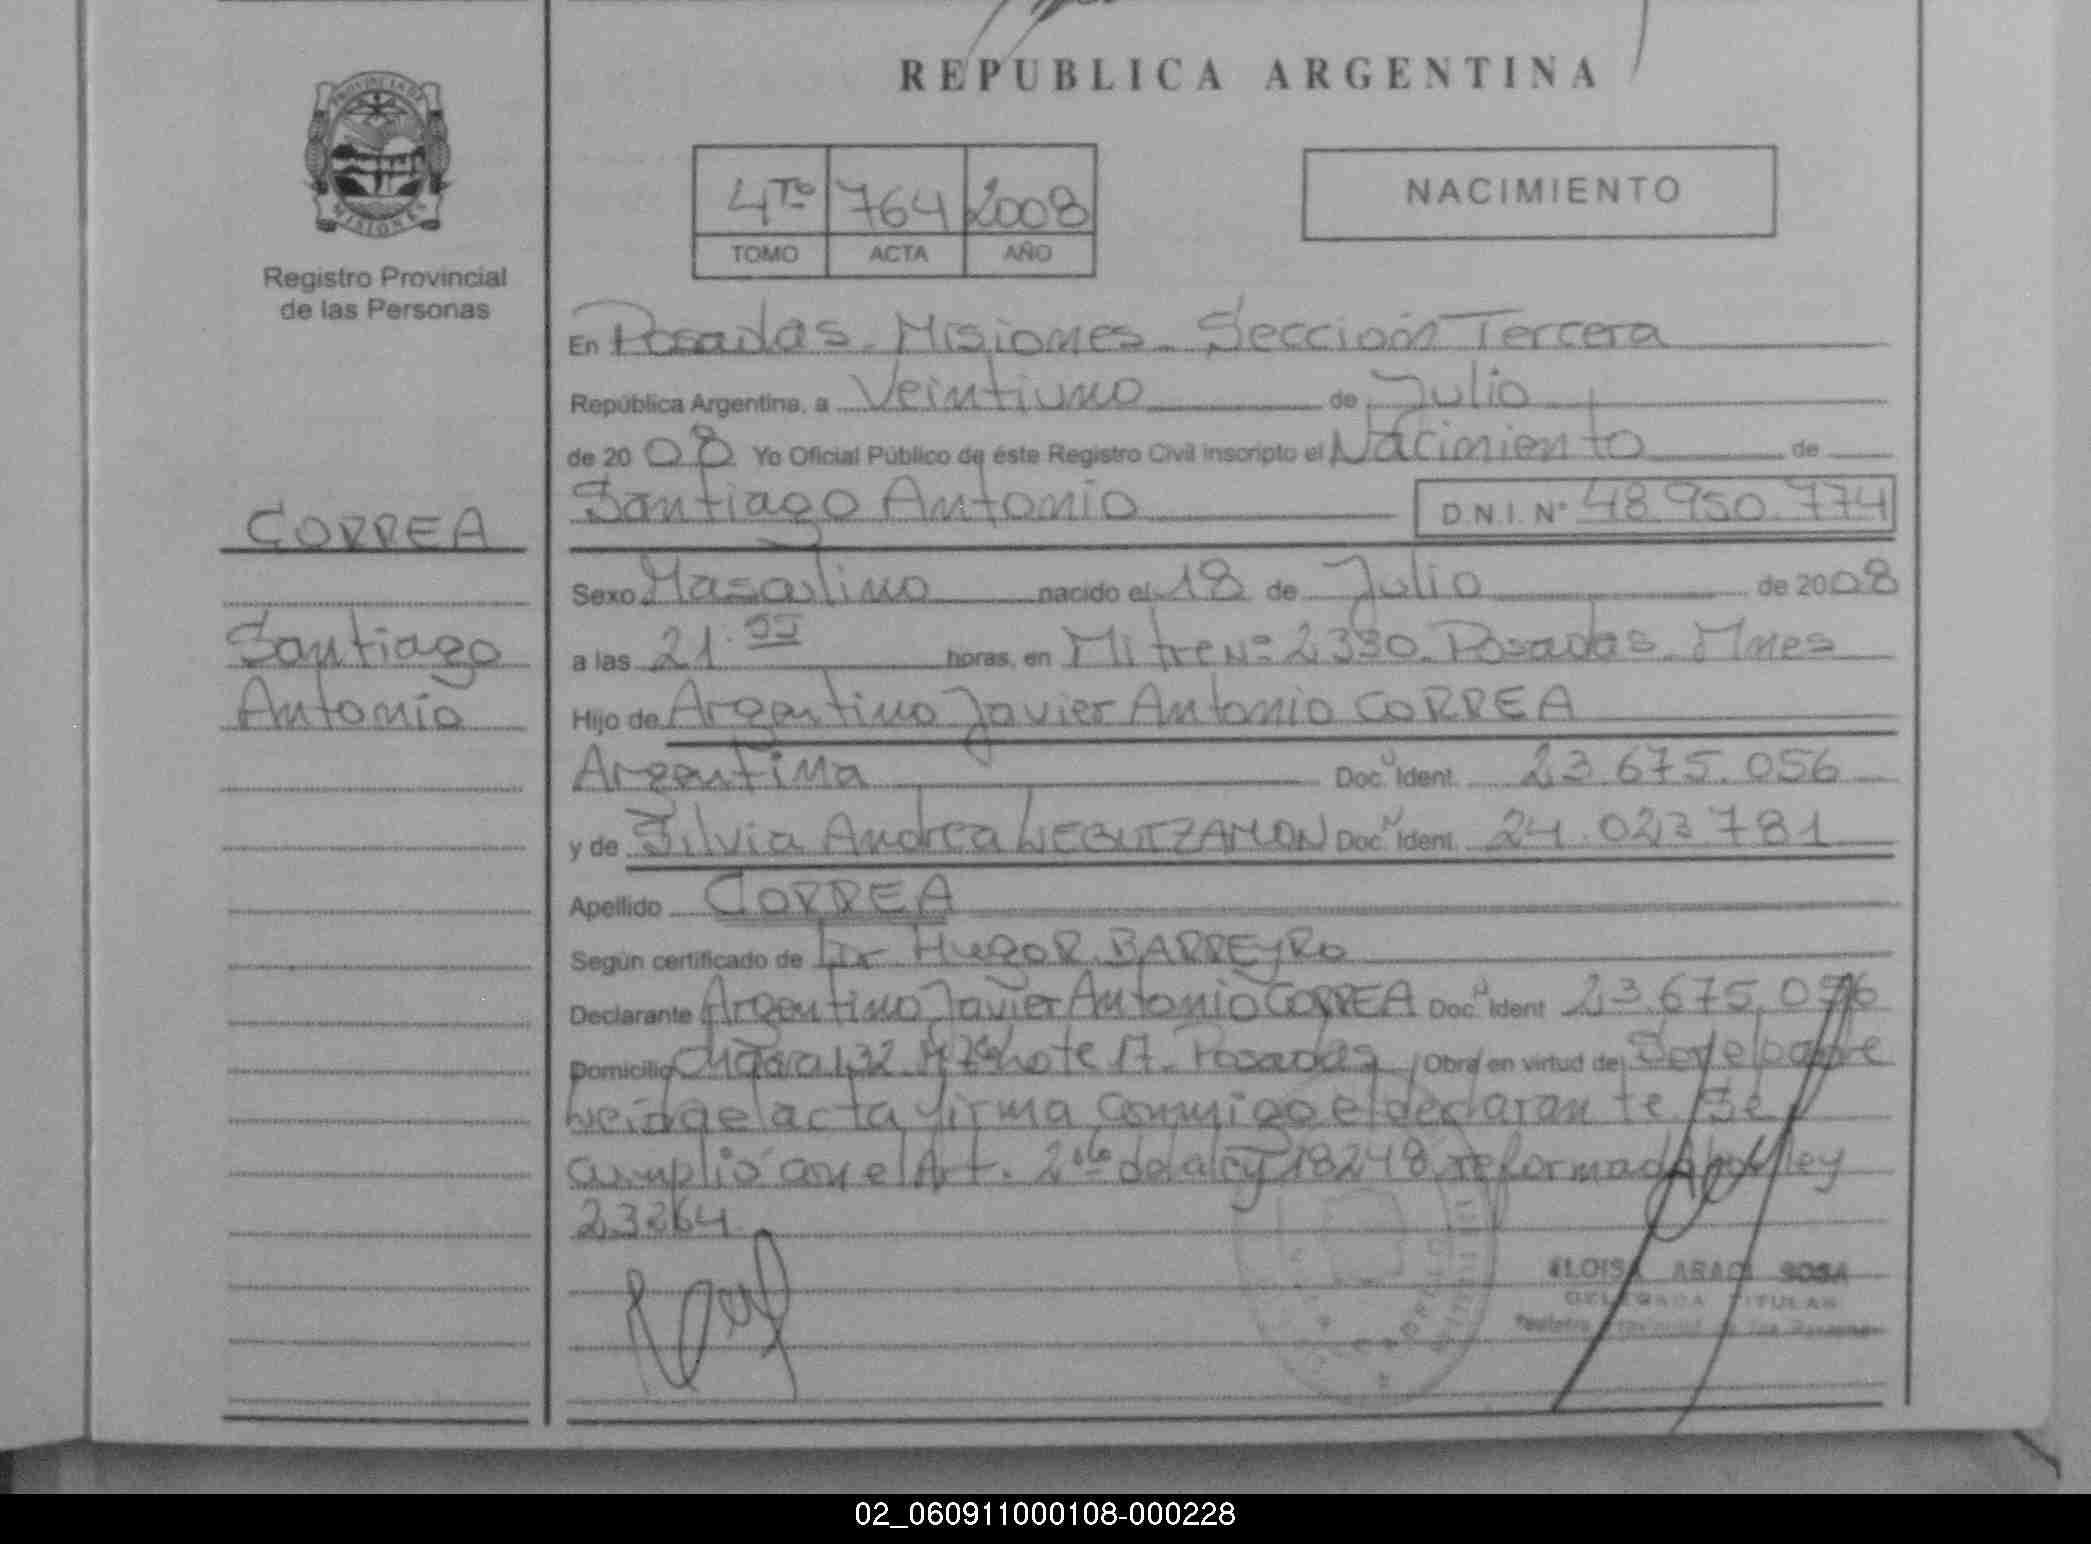 PROVINCIA DE
MISIONES
Registro Provincial
de las Personas
CORREA
Santiago
Antonio
REPUBLICA ARGENTINA
4To 764 2008
TOMO ACTA AÑO
NACIMIENTO
En Posadas - Misiones - Sección Tercera
República Argentina, a Veintiuno de Julio
de 20 08 Yo Oficial Público de éste Registro Civil inscripto el Nacimiento de
Santiago Antonio D.N.I. Nº 48.950.774
Sexo Masculino nacido el 18 de Julio de 2008
a las 21. horas, en Mitre Nº 2330 - Posadas - Mnes
Hijo de Argentino Javier Antonio CORREA
Argentina Doc. Ident. 23.675.056
y de Silvia Andrea LEGUIZAMON Doc. Ident. 24.023.781
Apellido CORREA
Según certificado de Dr. Hugo R. BARREYRO
Declarante Argentino Javier Antonio CORREA Doc. Ident 23.675.056
Domicilio Chacra 132 Lote 17 - Posadas Obra en virtud de Ser el padre
Leida el acta firma conmigo el declarante. Se
cumplió con el Art. 2do de la ley 18248 reformada por ley
23264
ELOISA ARACI SOSA
DELEGADA TITULAR
Registro Provincial de las Personas
02_060911000108-000228